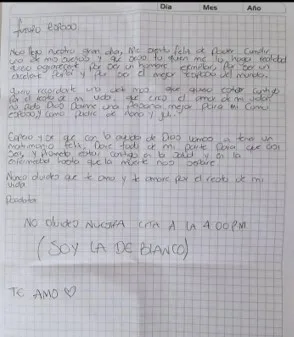 Día Mes Año
futuro esposo
Hoy llego nuestro gran día, Me siento feliz de poder
uno de mis sueños y que seas tu quien me lo haga realidad
quiero agradecerte por ser un hombre ejemplar, por ser un
excelente padre y por ser el mejor esposo del mundo.
quiero recordarte una vez mas que quiero estar contigo
por el resto de mi vida, que eres el amor de mi vida
no pudo Dios Darme una persona mejor para mi como
esposo y como padre de
Confio en que con la ayuda de Dios vamos a tener un
matrimonio feliz, Dare todo de mi parte para que asi
sea, y prometo estar contigo en la salud y en la
enfermedad hasta que la muerte nos separe
Nunca olvides que te amo y te amare por el resto de mi
vida
Posdata:
NO olvides NUESTRA CITA A LA 4:00PM
(SOY LA DE BLANCO)
TE AMO ♡